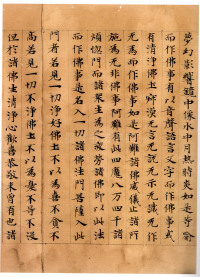 夢幻影響鏡中像水中月熱時炎如是等喻
而作佛事或有以音聲語言文字而作佛事或
有清淨佛土寂漠无言无說无示无識无作
无為而作佛事如是阿難諸佛威儀進止諸所
施為无非佛事阿難有此四魔八万四千諸
煩惱門而諸衆生為之疲勞諸佛即以此法
而作佛事是名入一切諸佛法門菩薩入此
門者若見一切淨好佛土不以為喜不貪不
高若見一切不淨佛土不以為憂不㝵不沒
但於諸佛生清淨心歡喜恭敬未曾有也諸